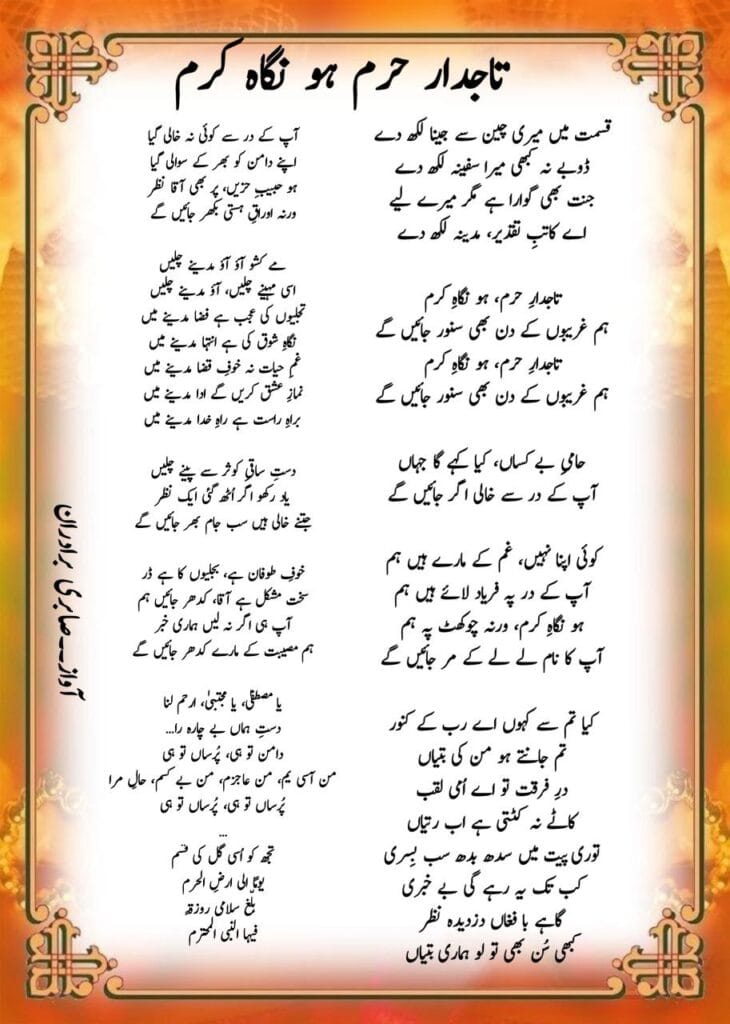 تاجدار حرم ہو نگاہ کرم
قسمت میں میری چین سے جینا لکھ دے
ڈوبے نہ کبھی میرا سفینہ لکھ دے
جنت بھی گوارا ہے مگر میرے لیے
اے کاتبِ تقدیر، مدینہ لکھ دے
تاجدارِ حرم، ہو نگاہِ کرم
ہم غریبوں کے دن بھی سنور جائیں گے
تاجدارِ حرم، ہو نگاہِ کرم
ہم غریبوں کے دن بھی سنور جائیں گے
حامیِ بے کساں، کیا کہے گا جہاں
آپ کے در سے خالی اگر جائیں گے
کوئی اپنا نہیں، غم کے مارے ہیں ہم
آپ کے در پہ فریاد لائے ہیں ہم
ہو نگاہِ کرم، ورنہ چوکھٹ پہ ہم
آپ کا نام لے لے کے مر جائیں گے
کیا تم سے کہوں اے رب کے کنور
تم جانتے ہو من کی بتیاں
درِ فرقت تو اے اُمی لقب
کاٹے نہ کٹتی ہے اب رتیاں
توری پیت میں سدھ بدھ سب بِسری
کب تک یہ رہے گی بے خبری
گاہے بافغاں دزدیدہ نظر
کبھی سُن بھی تو لو ہماری بتیاں
آپ کے در سے کوئی نہ خالی گیا
اپنے دامن کو بھر کے سوالی گیا
ہو حبیبِ حزیں، پر بھی آقا نظر
ورنہ اوراقِ ہستی بکھر جائیں گے
مے کشو آؤ آؤ مدینے چلیں
اسی مہینے چلیں، آؤ مدینے چلیں
تجلیوں کی عجب ہے فضا مدینے میں
نگاہِ شوق کی ہے انتہا مدینے میں
غمِ حیات نہ خوفِ قضا مدینے میں
نمازِ عشق کریں گے ادا مدینے میں
براہِ راست ہے راہِ خدا مدینے میں
دستِ ساقیِ کوثر سے پینے چلیں
یاد رکھو اگر اُٹھ گئی ایک نظر
جتنے خالی ہیں سب جام بھر جائیں گے
خوفِ طوفان ہے، بجلیوں کا ہے ڈر
سخت مشکل ہے آقا، کدھر جائیں ہم
آپ ہی اگر نہ لیں ہماری خبر
ہم مصیبت کے مارے کدھر جائیں گے
یا مصطفٰی، یا مجتبیٰ، ارحم لنا
دستِ ہماں بے چارہ را...
دامن تو ہی، پُرساں تو ہی
من آسی یم، من عاجزم، من بے کسم، حالِ مرا
پُرساں تو ہی، پُرساں تو ہی
...
تجھ کو اُسی گل کی قسم
یومًا الی ارضِ الحرم
بلغ سلامی روزۃ
فیہا النبی المحترم
آواز۔۔صابری برادران